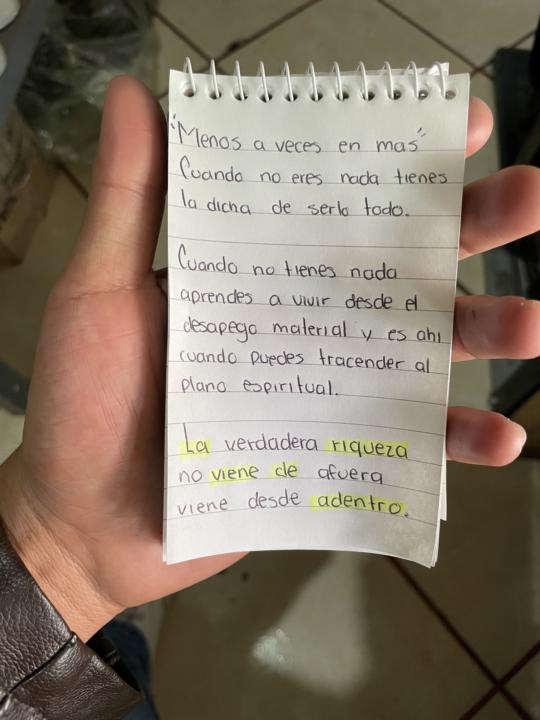 "Menos a veces en mas"
Cuando no eres nada tienes
la dicha de serlo todo.
Cuando no tienes nada
aprendes a vivir desde el
desapego material y es ahi
cuando puedes tracender al
plano espiritual.
La verdadera riqueza
no viene de afuera
viene desde adentro.